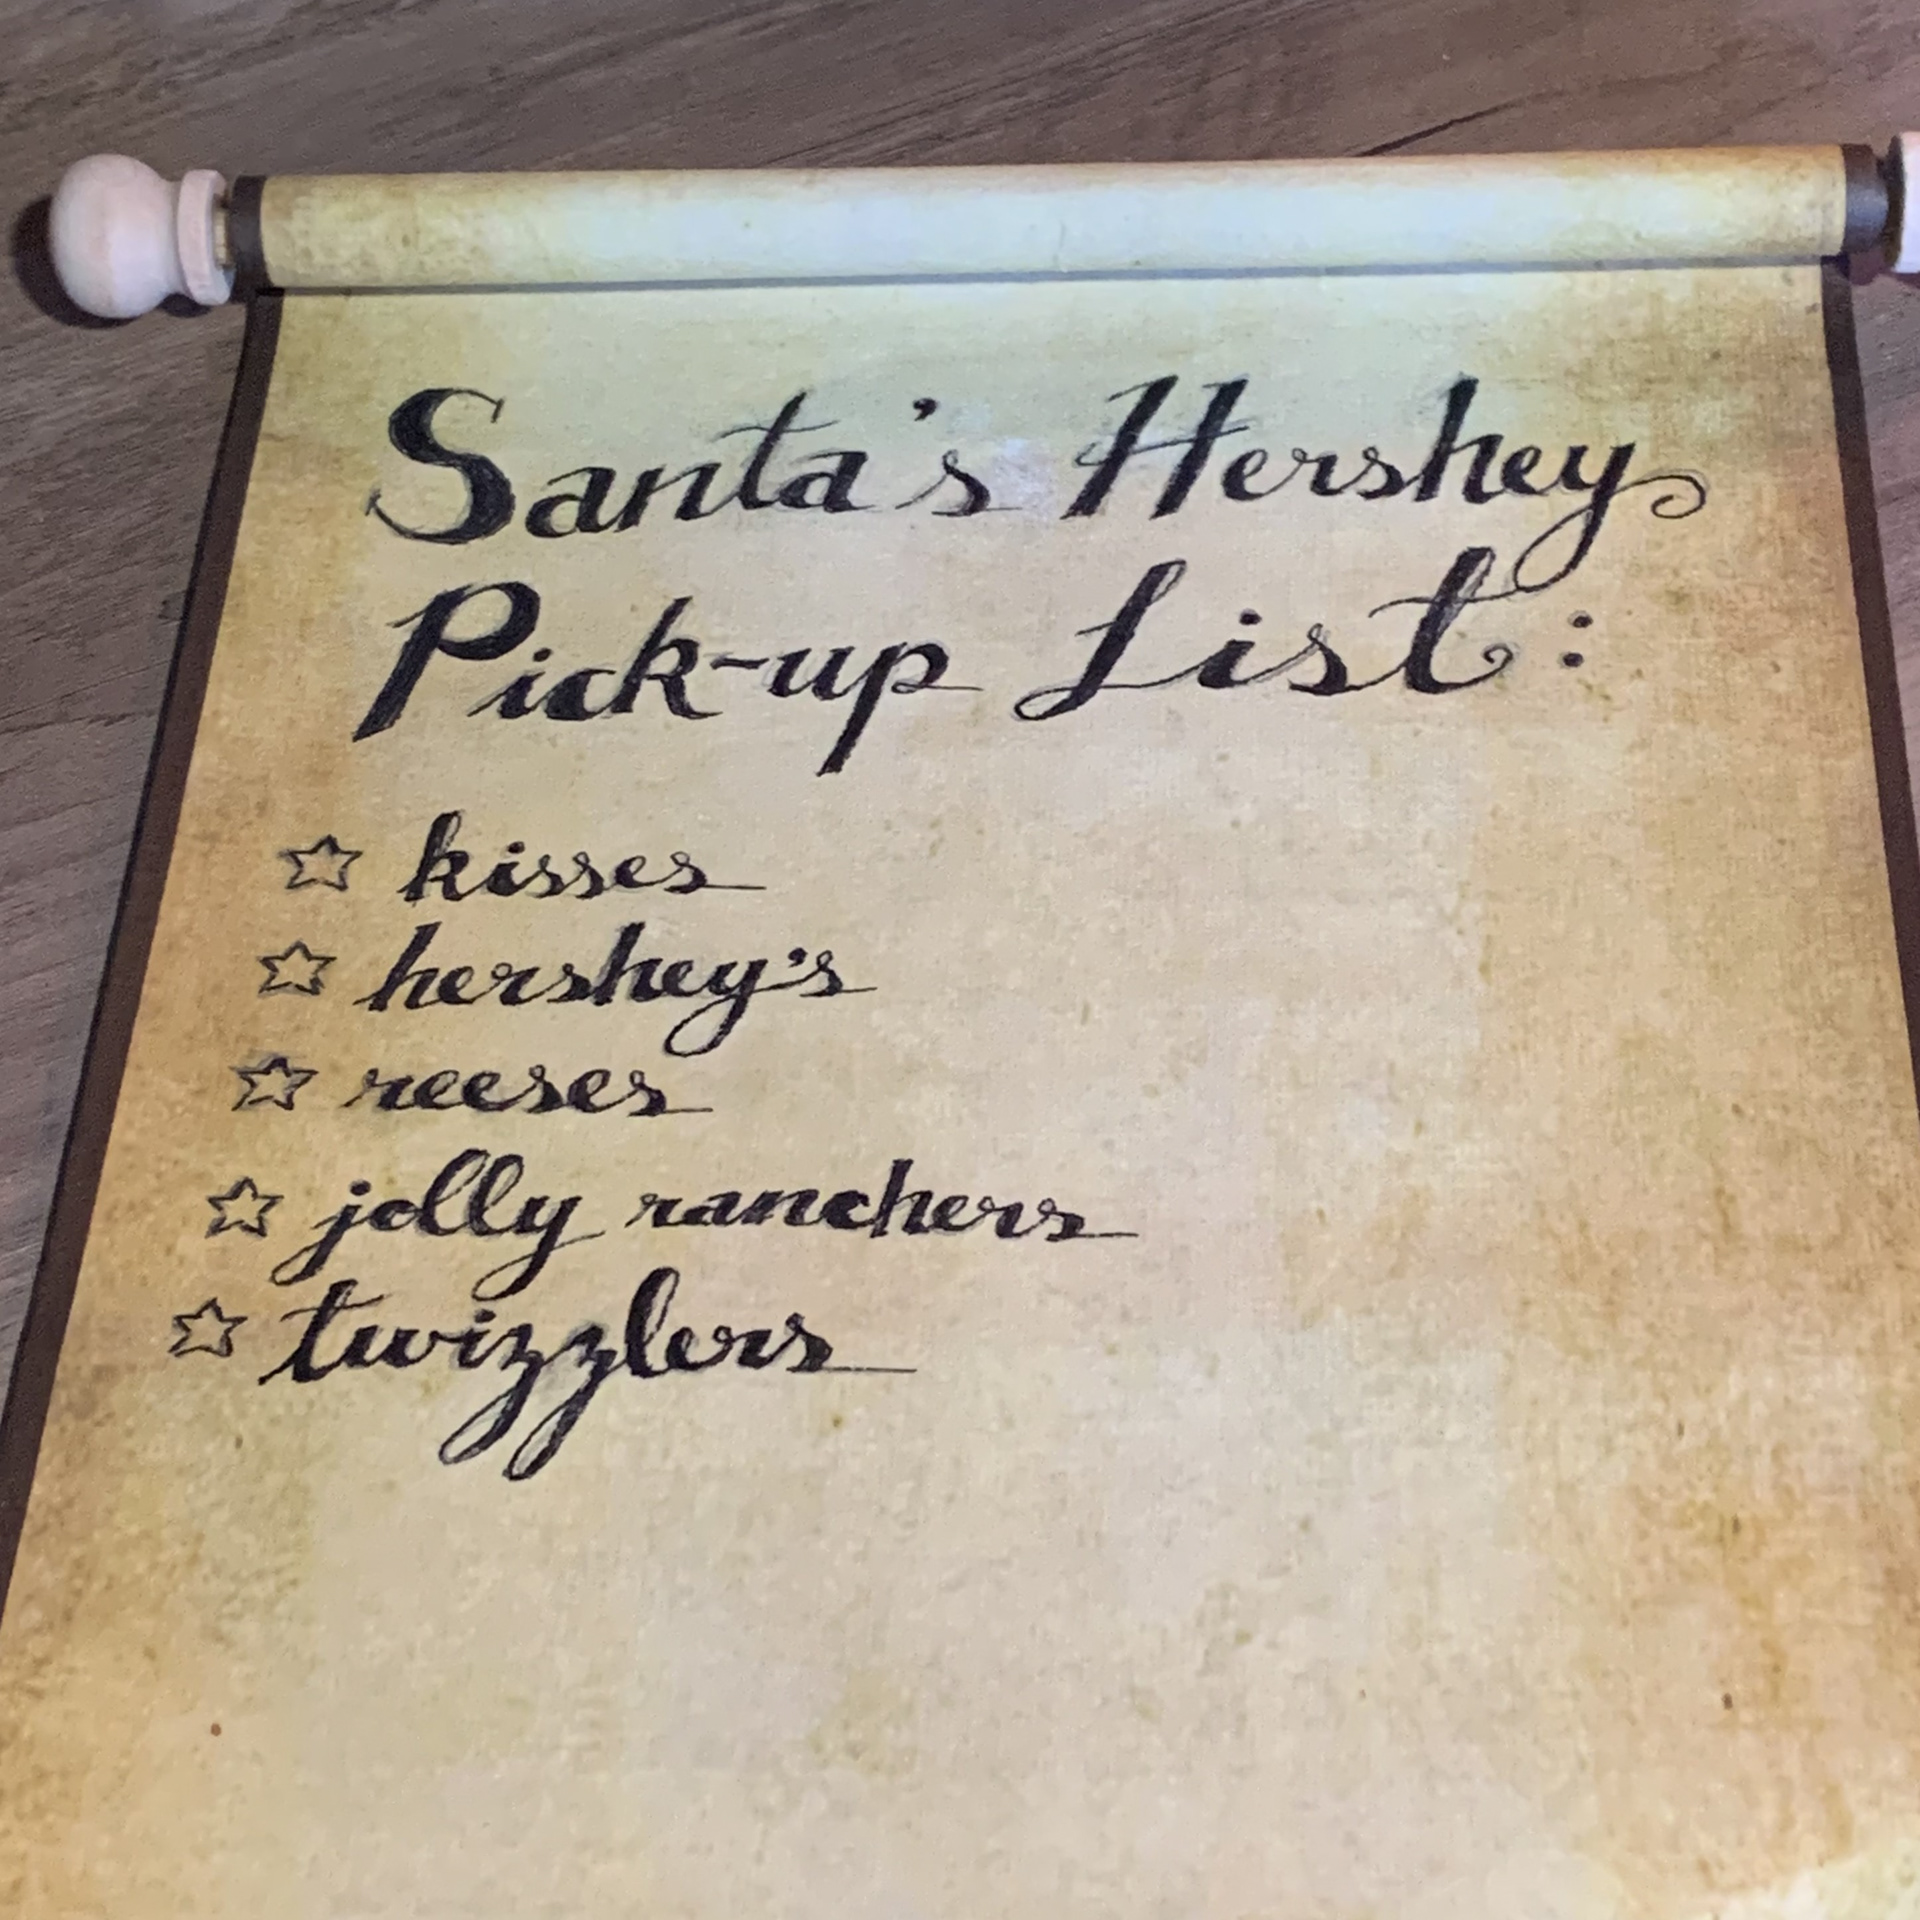 Santa's Hershey
Pick-up List:
☆ kisses
☆ hershey's
☆ reeses
☆ jolly ranchers
☆ twizzlers